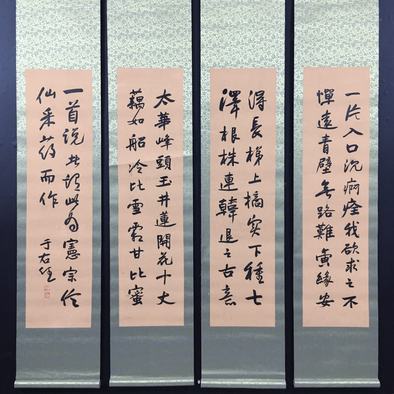 一片入口沉痾痊我欲求之不
憚遠青壁無路難夤緣安
得長梯上摘實下種七
澤根株連韓退之古意
太華峰頭玉井蓮開花十丈
藕如船冷比雪霜甘比蜜
一首说此為憲宗
仙采药而作
于右任